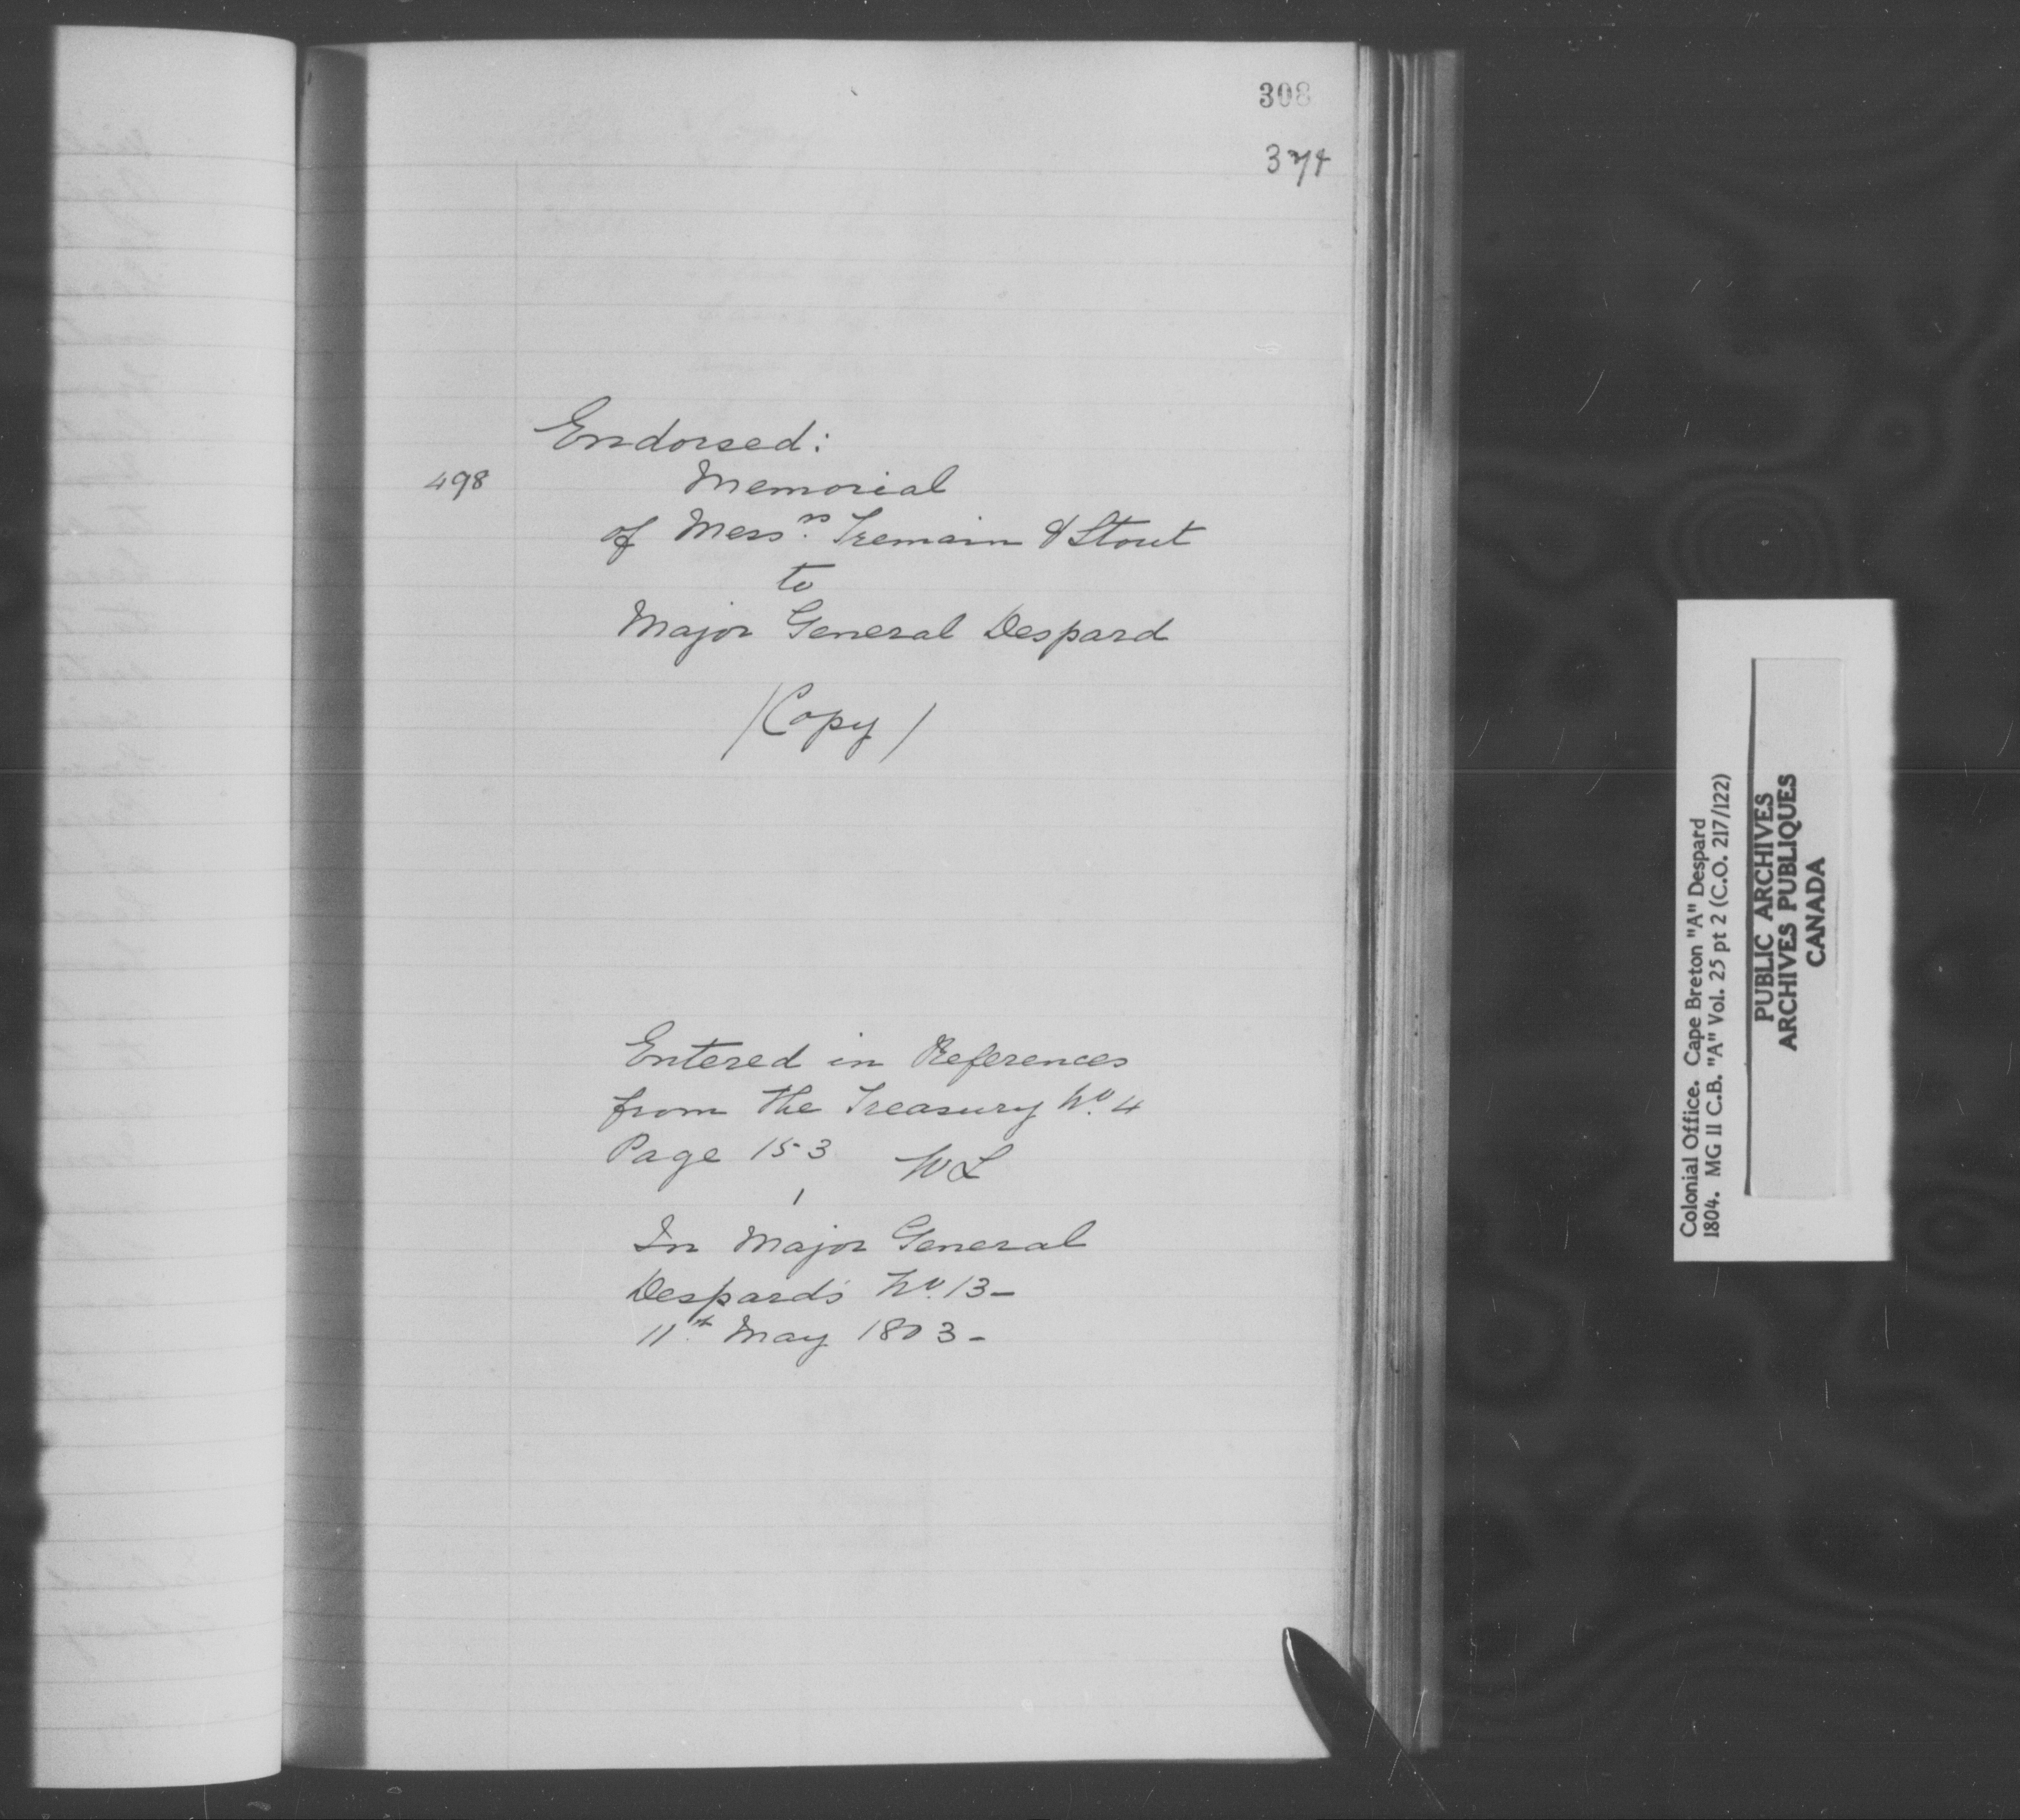 308
374
Endorsed:
498
Memorial
of Messrs. Tremain & Stout
to
Major General Despard
/Copy/
Entered in References
from the Treasury No. 4
Page 153 WL
In Major General
Despard's No. 13-
11th May 1803-
Colonial Office. Cape Breton "A" Despard
1804. MG 11 C.B. "A" Vol. 25 pt 2 (C.O. 217/122)
PUBLIC ARCHIVES
ARCHIVES PUBLIQUES
CANADA